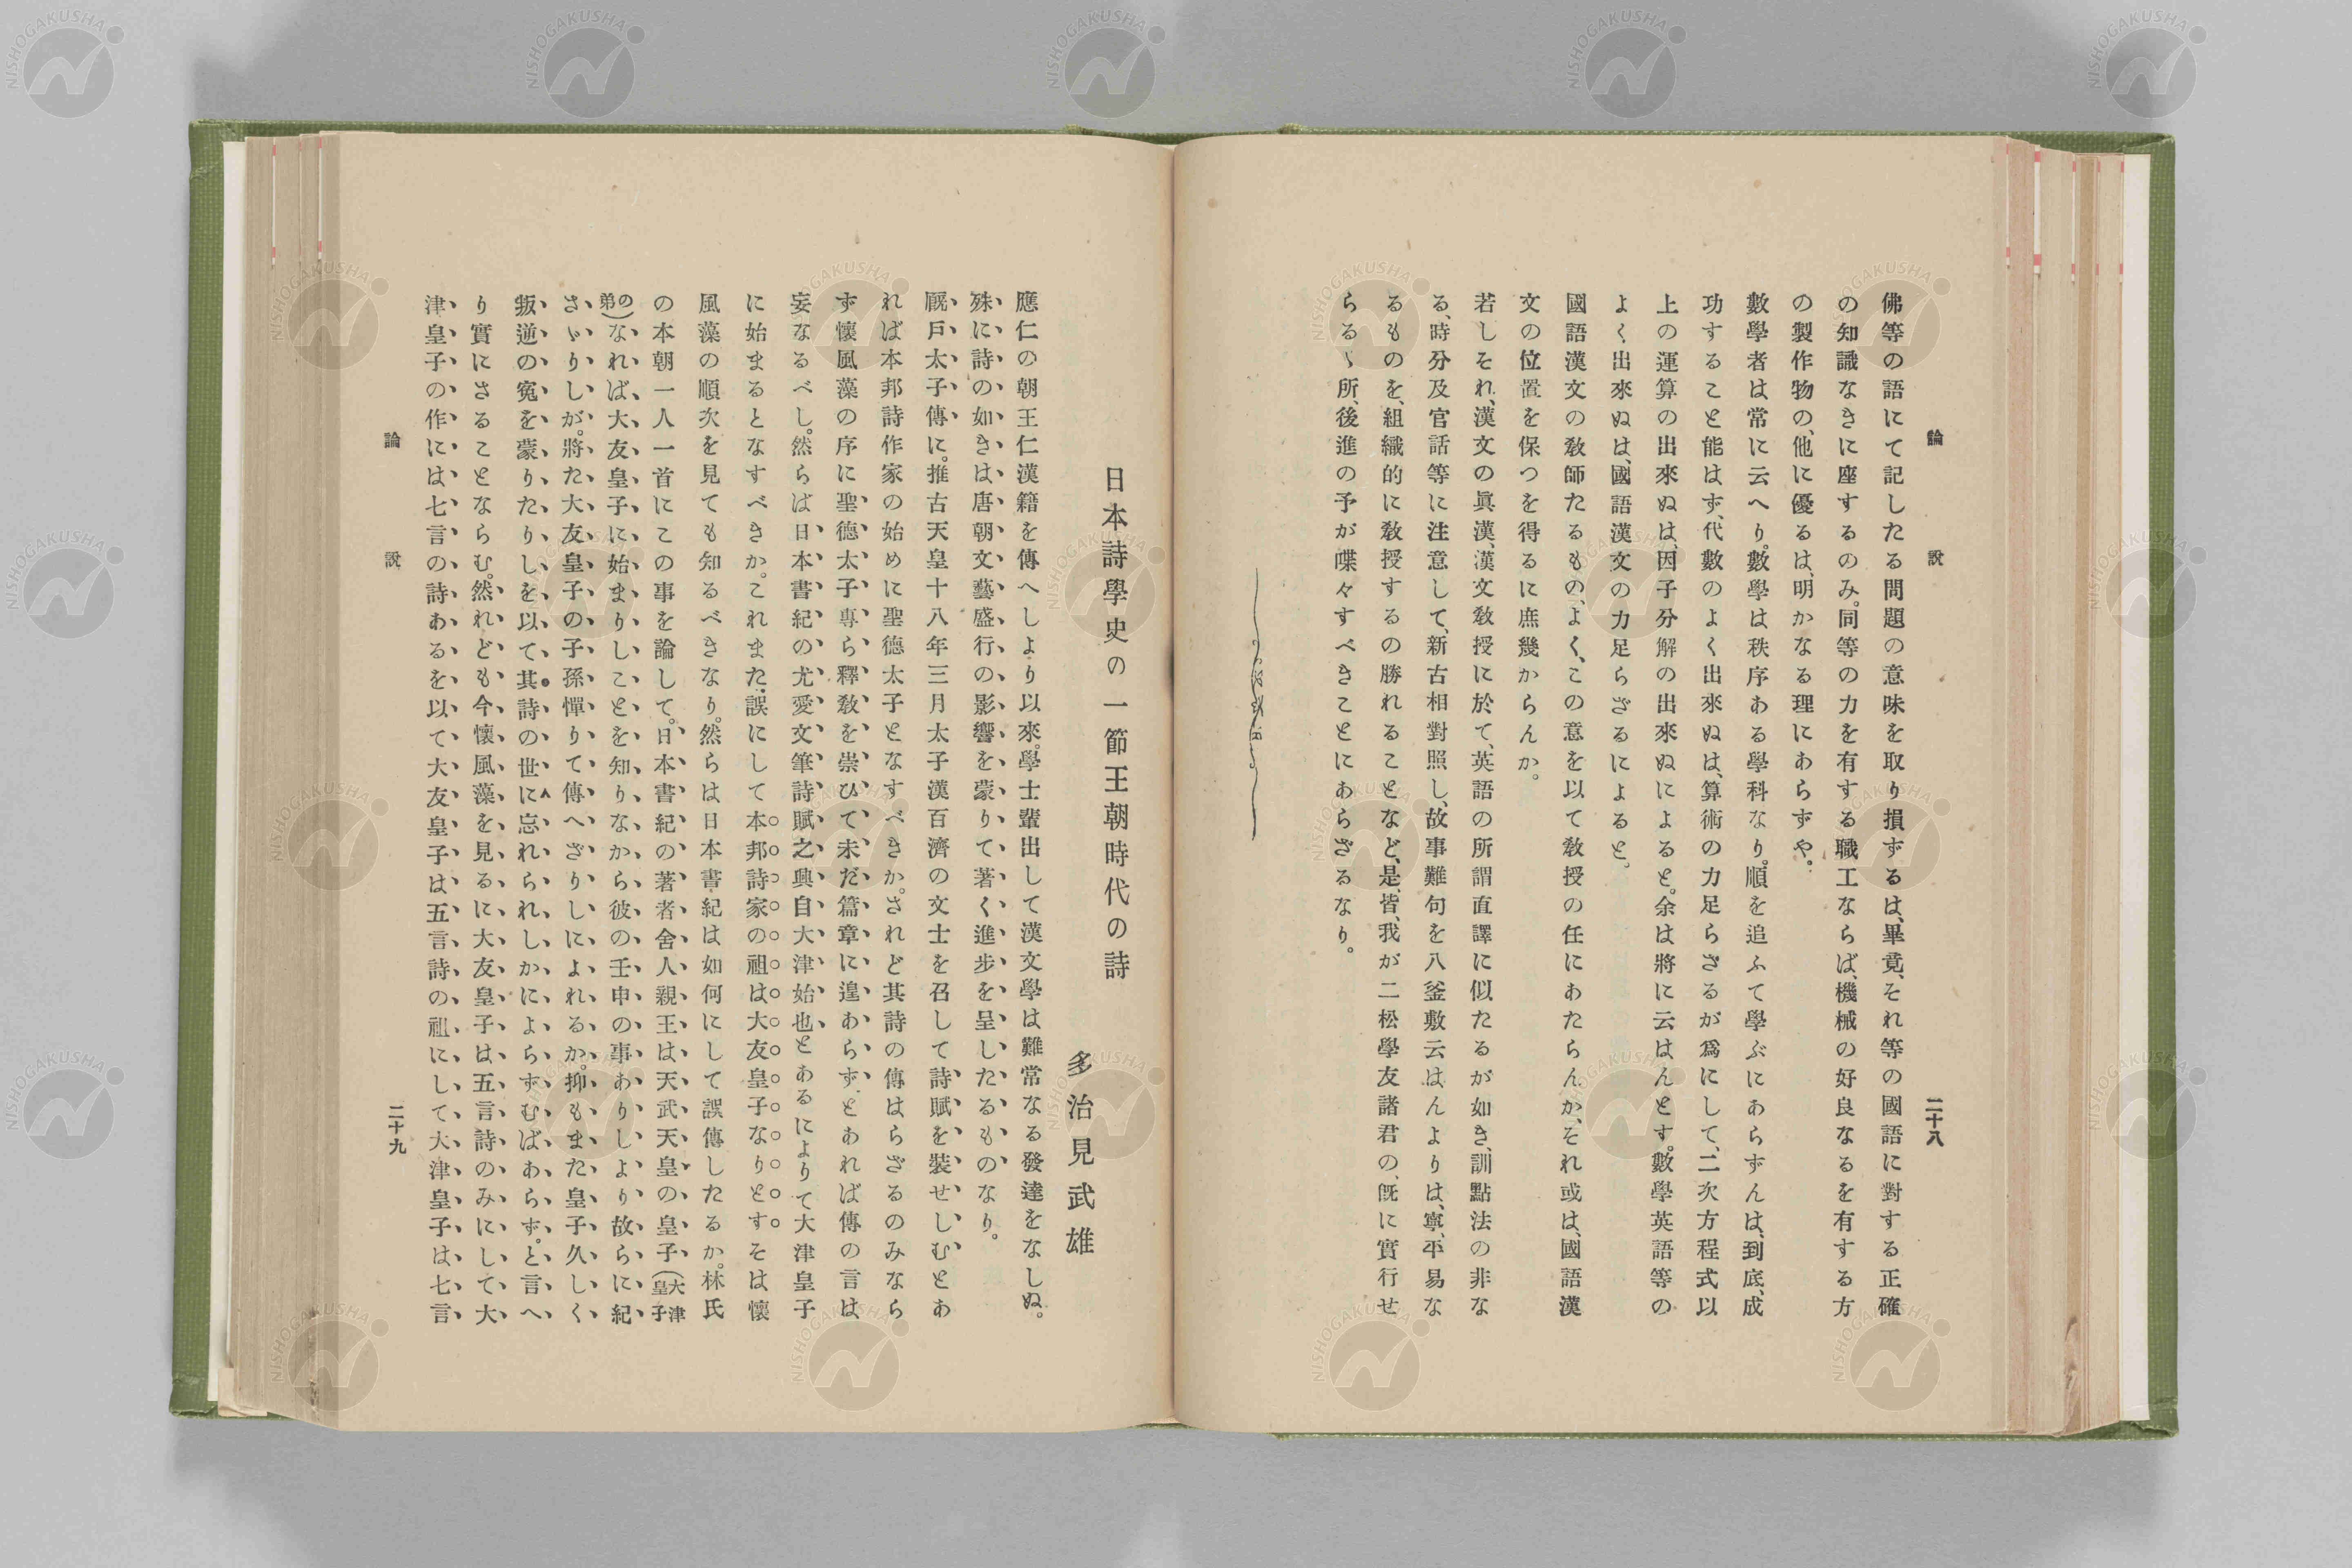 論說
二十八
佛等の語にて記したる問題の意味を取り損ずるは、畢竟、それ等の國語に對する正確
の知識なきに座するのみ。同等の力を有する職工ならば、機械の好良なるを有する方
の製作物の、他に優るは、明かなる理にあらずや。
數學者は常に云へり。數學は秩序ある學科なり。順を追ふて學ぶにあらずんは、到底、成
功すること能はず、代數のよく出來ぬは、算術の力足らざるが爲にして、二次方程式以
上の運算の出來ぬは、因子分解の出來ぬによると。余は將に云はんとす。數學英語等の
よく出來ぬは、國語漢文の力足らざるによると。
國語漢文の敎師たるもの、よく、この意を以て敎授の任にあたらんか、それ或は、國語漢
文の位置を保つを得るに庶幾からんか。
若しそれ、漢文の眞漢、漢文敎授に於て、英語の所謂直譯に似たるが如き、訓點法の非な
る、時分及官話等に注意して、新古相對照し、故事難句を八釜敷云はんよりは、寧、平易な
るものを、組織的に敎授するの勝れることなど、是、皆、我が二松學友諸君の、旣に實行せ
らるゝ所、後進の予が喋々すべきことにあらざるなり。
日本詩學史の一節王朝時代の詩
多治見武雄
應仁の朝王仁漢籍を傳へしより以來。學士輩出して漢文學は難常なる發達をなしぬ。
殊に詩の如きは、唐朝文藝盛行の影響を蒙りて著く進步を呈したるものなり。
厩戶太子傳に。推古天皇十八年三月太子漢百濟の文士を召して詩賦を裝せしむとあ
れば本邦詩作家の始めに聖德太子となすべきか。されど其詩の傳はらざるのみなら
ず懷風藻の序に聖德太子專ら釋敎を崇ひて未だ篇章に遑あらず、とあれば傳の言は
妄なるべし。然らば日本書紀の尤愛文筆詩賦之興自大津始也とあるによりて大津皇子
に始まるとなすべきか。これまた誤にして本邦詩家の祖は大友皇子なりとすそは懷
風藻の順次を見ても知るべきなり。然らは日本書紀は如何にして誤傳したるか。林氏
の本朝一人一首にこの事を論して。日本書紀の著者舍人親王は天武天皇の皇子(大津皇子
の弟)なれば、大友皇子に始まりしことを知りなから彼の壬申の事ありしより故らに紀
さゞりしが。將た大友皇子の子孫憚りて傳へざりしによれるか。抑もまた皇子久しく
叛逆の寃を蒙りたりしを以て其詩の世に忘られしかによらずむばあらず。と言へ
り實にさることならむ。然れども今懷風藻を見るに大友皇子は五言詩のみにして大
津皇子の作には七言の詩あるを以て大友皇子は五言詩の祖にして大津皇子は七言
論說
二十九